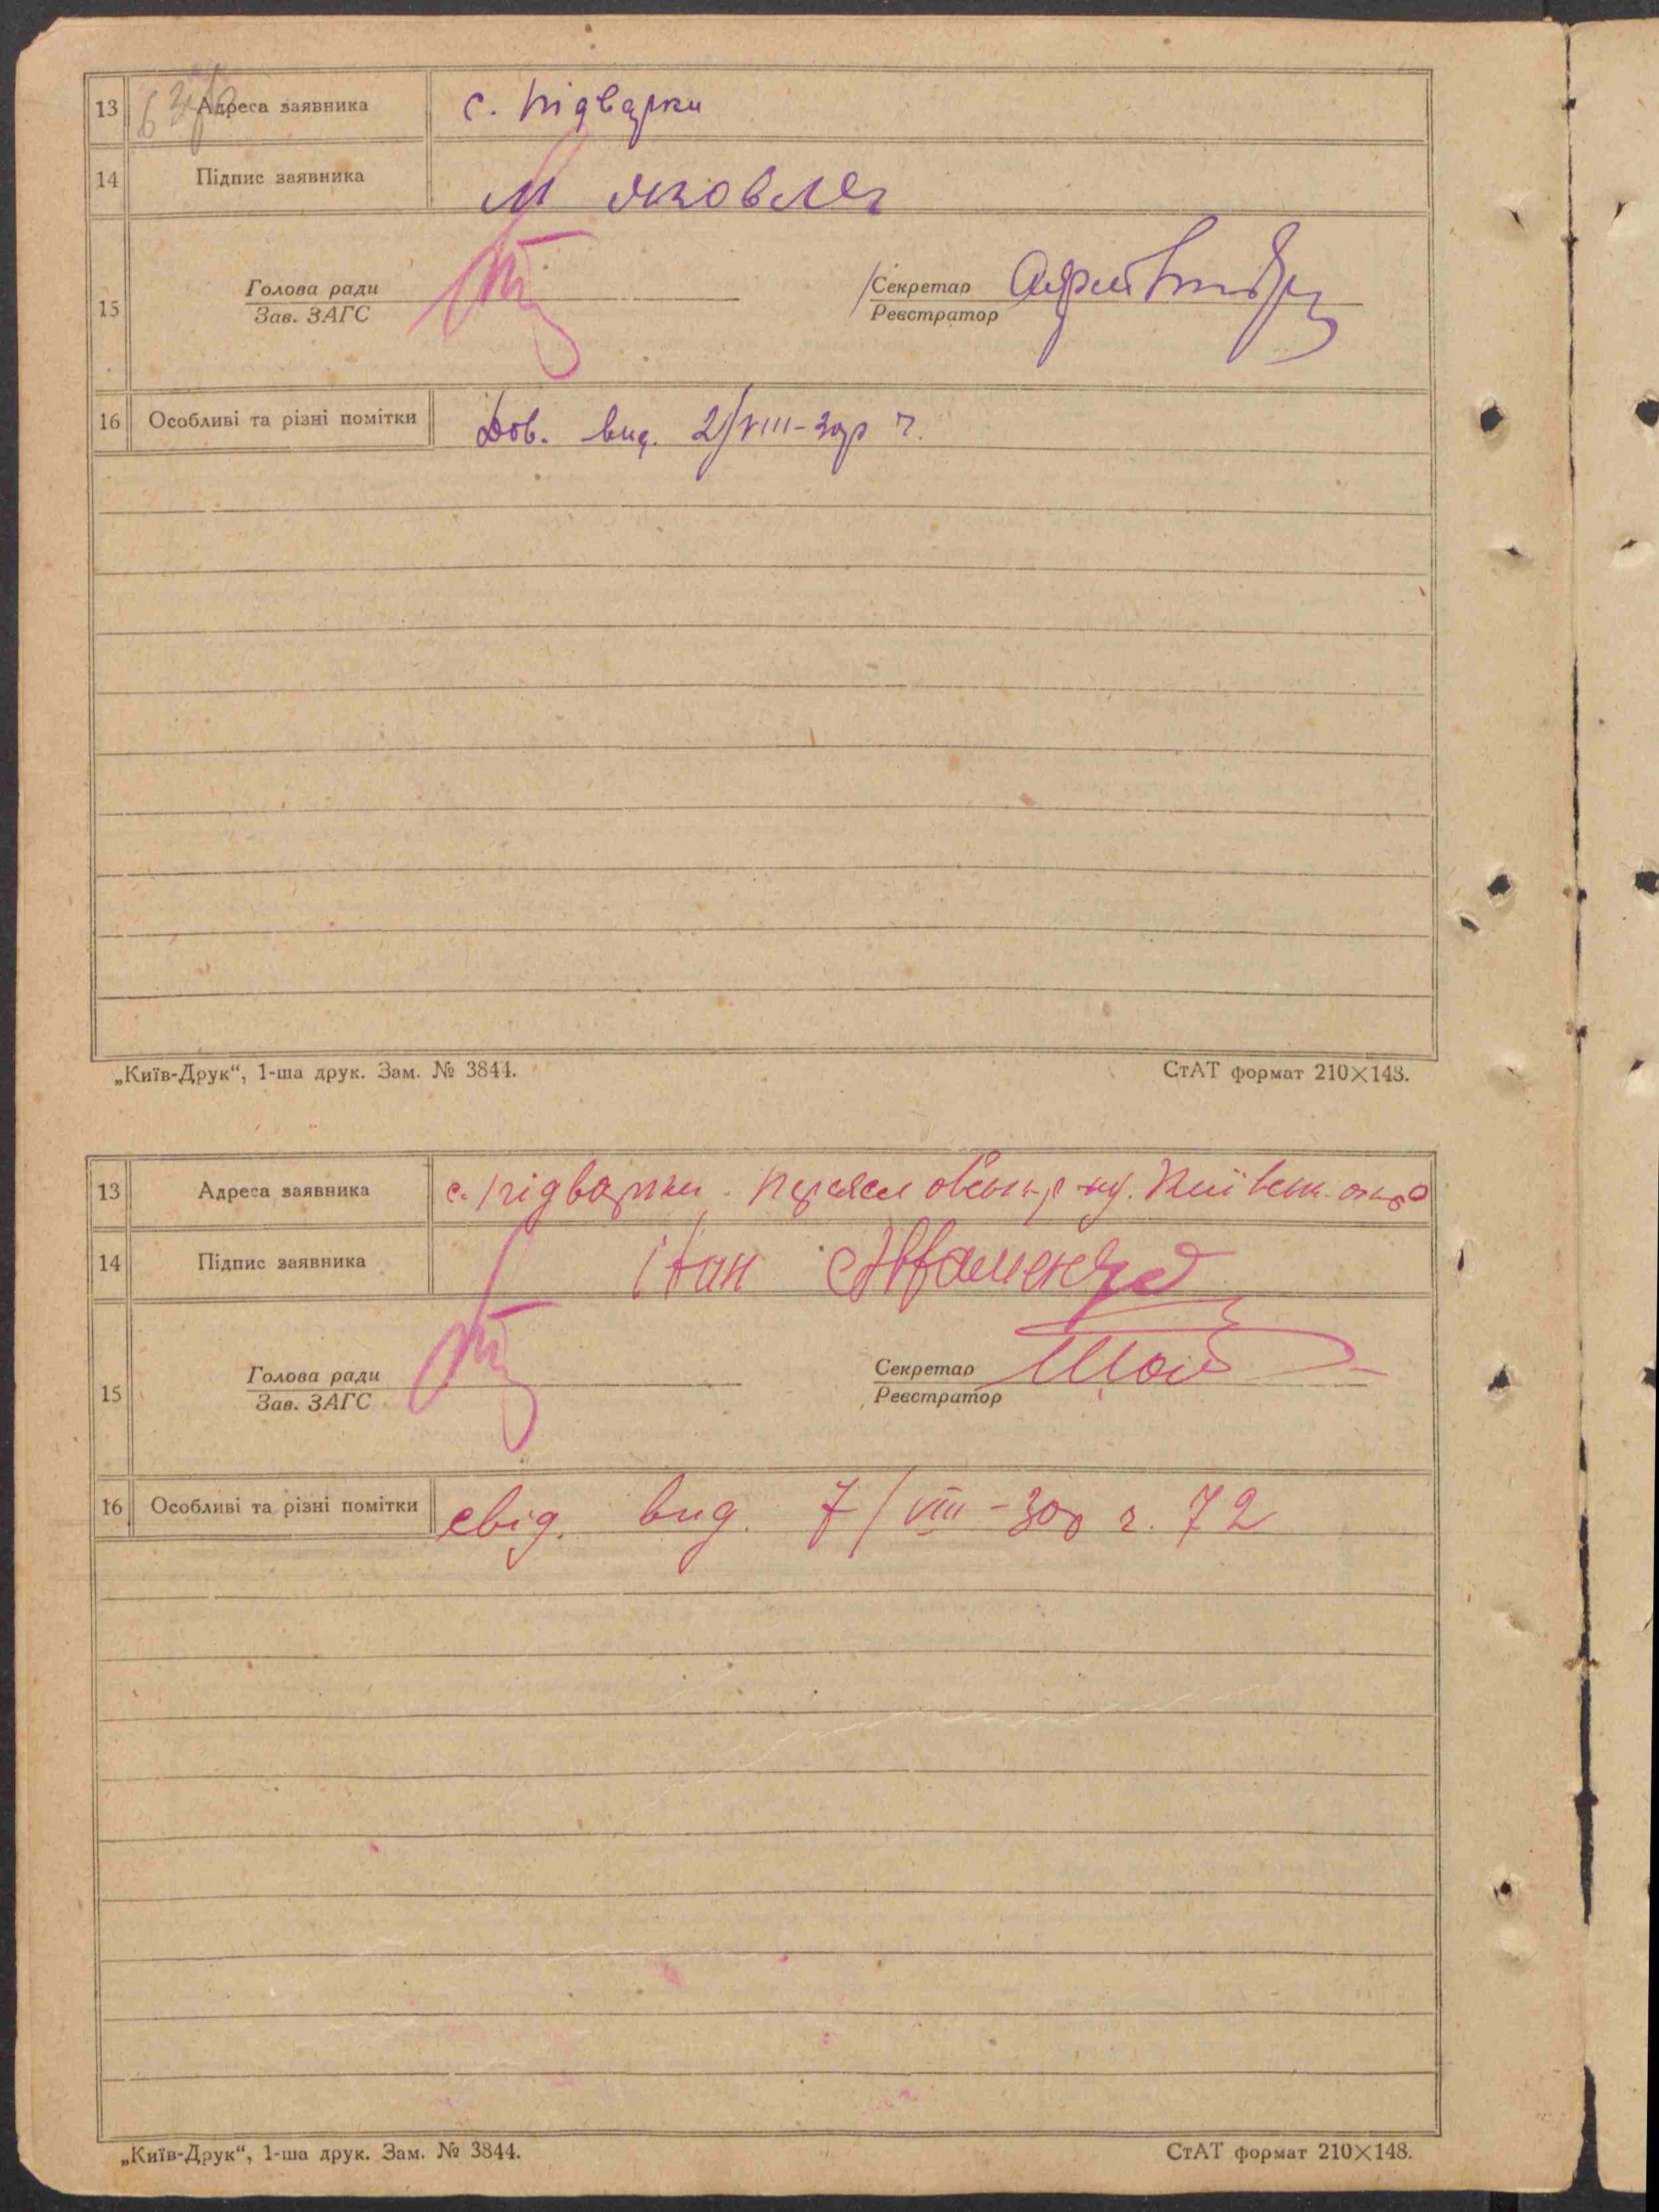 13 Адреса заявника с. Підварки
14 Підпис заявника М Яковлєв
15 Голова ради Секретар
Зав. ЗАГС Реєстратор
16 Особливі та різні помітки Дов. вид. 2/VIII-30р
„Київ-Друк“, 1-ша друк. Зам. № 3844. СтАТ формат 210×148.
13 Адреса заявника с. Підварки
14 Підпис заявника
15 Голова ради Секретар
Зав. ЗАГС Реєстратор
16 Особливі та різні помітки свід. вид. 7/VIII-30р ч. 72
„Київ-Друк“, 1-ша друк. Зам. № 3844. СтАТ формат 210×148.